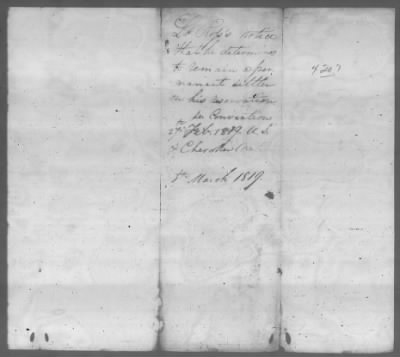 Ross's notice
that he determines
to remain a per
manent settler
on his reservation
per Convention
27 Feb. 1819. U.S.
& Cherokee
March 1819.